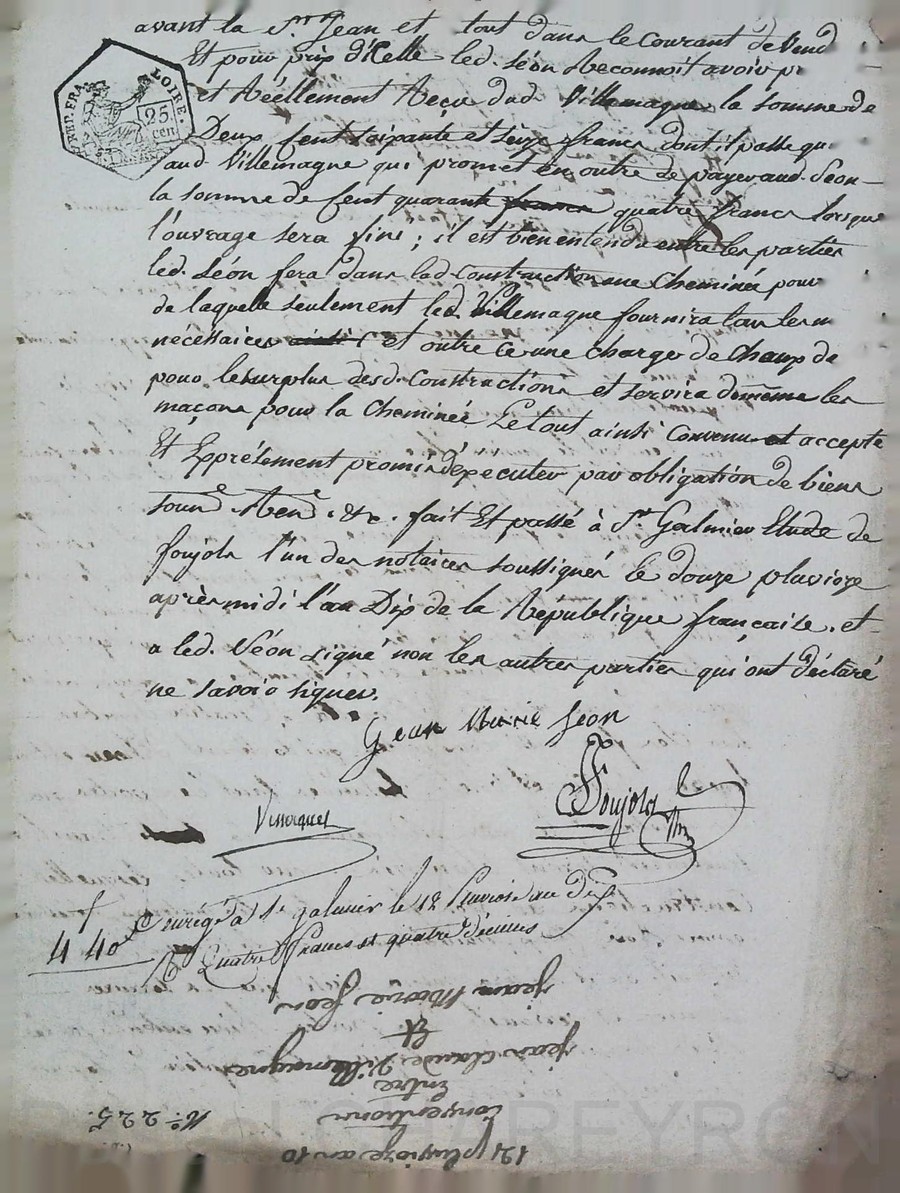 avant la St. Jean et tout dans le Courant de Vend
Et pour prix d'icelle led. Séon Reconnoit avoir
et Réellement Reçu dud. Villemagne la somme de
REP. FRA. LOIRE. 25. cen
Deux Cent Soixante et Seize francs dont il passe
aud. Villemagne qui promet en outre de payer aud. Séon
la somme de Cent quarante francs quatre francs lorsque
l'ouvrage sera fini ; il est bien entendu entre les parties
led. Séon fera dans lad. Construction une Cheminée pour
de laquelle seulement led. Villemagne fournira tous les
nécéssaires ainsi et outre ce une charge de Chaux de
pour le surplus desd. Constructions et servira de meme les
maçons pour la Cheminée Le tout ainsi Convenu et accepté
Et Expréssement promis d'exécuter par obligation de biens
soum. Ren. &c. fait Et passé à St. Galmier Etude de
foujols l'un des notaires soussignés le douze pluvioze
après midi l'an Dix de la République française, et
a led. Séon signé non les autres parties qui ont déclaré
ne savoir signer.
Jean Marie Seon
Foujols
4 40
Enrégé. à St. galmier le 18 Pluviose an dix
R. Quatre francs et quatre décimes
12 pluvioze an 10
Conventions
N.° 225.
Entre
jean claude Villemagne
Et
jean Marie Seon
CHAREYRON